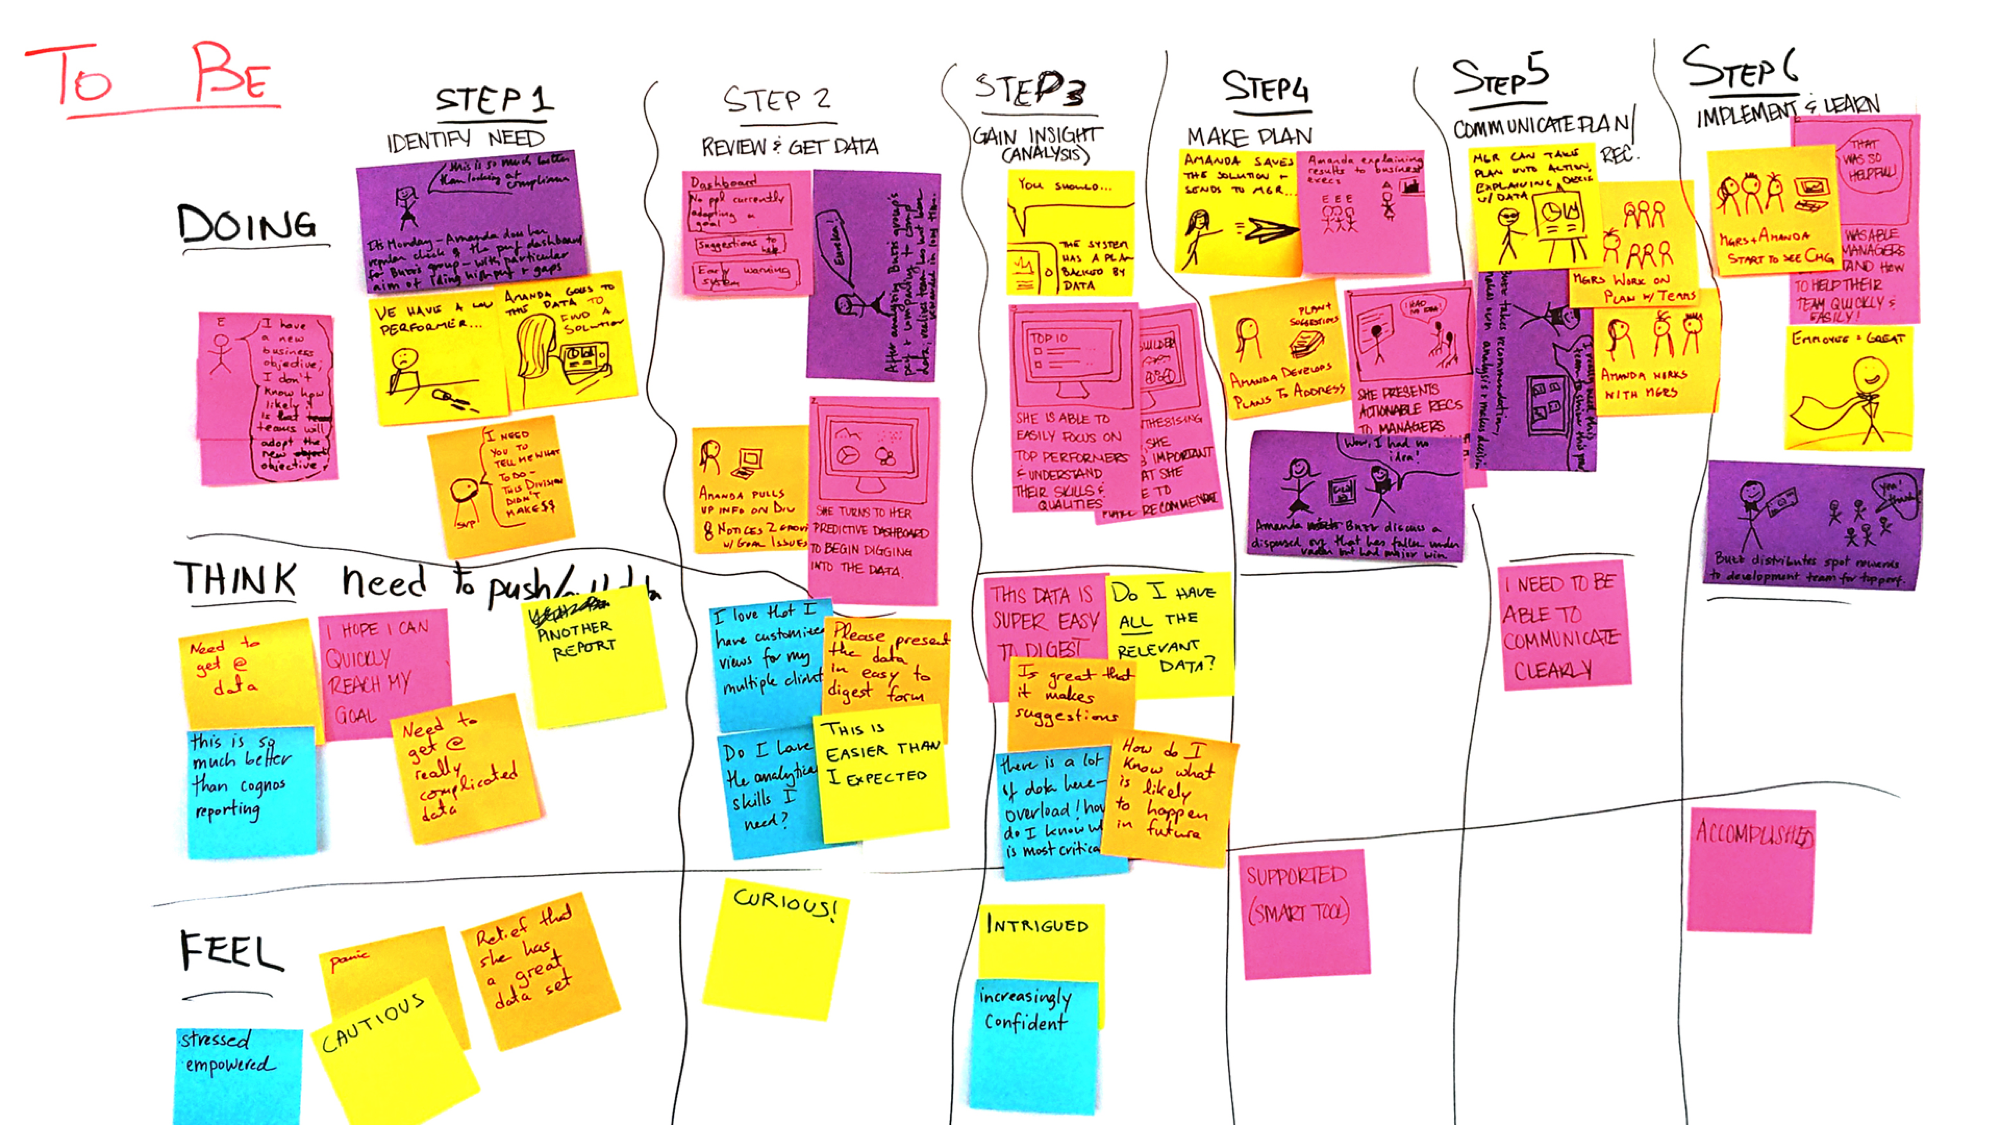 TO BE
STEP 1
IDENTIFY NEED
STEP 2
REVIEW & GET DATA
STEP 3
GAIN INSIGHT
(ANALYSIS)
STEP 4
MAKE PLAN
STEP 5
COMMUNICATE PLAN/
REC.
STEP 6
IMPLEMENT & LEARN
DOING
this is so much better
than looking at
compliance
It's Monday - Amanda does her
regular check of the perf dashboard
for Buzz's group - with particular
aim of IDing high pot & gaps
E
I have
a new
business
objective;
I don't
know how
likely it
is that
teams will
adopt the
new
objective
VE HAVE A LOW
PERFORMER...
AMANDA GOES TO
DATA TO
FIND A
SOLUTION
I NEED
YOU TO
TELL ME WHAT
TO DO -
THIS DIVISION
DIDN'T
MAKE $$
SVP
Dashboard
No ppl currently
adopting a
goal
Suggestions to
help
Early warning
system
Eureka!
After analyzing Buzz's group's
AMANDA PULLS
UP INFO ON DIV
& NOTICES 2 GROUPS
W/ GOAL ISSUES
SHE TURNS TO HER
PREDICTIVE DASHBOARD
TO BEGIN DIGGING
INTO THE DATA.
YOU SHOULD...
THE SYSTEM
HAS A PLAN
BACKED BY
DATA
TOP 10
SHE IS ABLE TO
EASILY FOCUS ON
TOP PERFORMERS
& UNDERSTAND
THEIR SKILLS &
QUALITIES
UILDER
THESISING
SHE
IMPORTANT
AT SHE
E TO
RECOMMEND
AMANDA SAVES
THE SOLUTION &
SENDS TO MGR...
Amanda explaining
results to business
execs
E E E
A
PLAN &
SUGGESTIONS
AMANDA DEVELOPS
PLANS TO ADDRESS
I HAD
NO IDEA!
SHE PRESENTS
ACTIONABLE RECS
TO MANAGERS
Wow, I had no
idea!
Amanda Buzz discuss a
dispersed org that has fallen under
radar but had major win
MGR CAN TAKE
PLAN INTO ACTION,
EXPLAINING DECIS
W/ DATA
MGRS WORK ON
PLAN W/ TEAMS
AMANDA WORKS
WITH MGRS
Buzz takes recommendation,
MGRS + AMANDA
START TO SEE CHG
THAT
WAS SO
HELPFUL!
WAS ABLE
MANAGERS
AND HOW
TO HELP THEIR
TEAM QUICKLY &
EASILY!
EMPLOYEE = GREAT
yea!
Buzz distributes spot rewards
to development team for top perf.
THINK
need to push/
Need to
get @
data
I HOPE I CAN
QUICKLY
REACH MY
GOAL
ANOTHER
REPORT
this is so
much better
than cognos
reporting
Need to
get @
really
complicated
data
I love that I
have customized
views for my
multiple clients
Please present
the data
in easy to
digest form
Do I have
the analytical
skills I
need?
THIS IS
EASIER THAN
I EXPECTED
THIS DATA IS
SUPER EASY
TO DIGEST
DO I HAVE
ALL THE
RELEVANT
DATA?
Is great that
it makes
suggestions
there is a lot
of data here -
overload! how
do I know w
is most critica
How do I
know what
is likely
to happen
in future
I NEED TO BE
ABLE TO
COMMUNICATE
CLEARLY
FEEL
panic
CAUTIOUS
Relief that
she has
a great
data set
stressed
empowered
CURIOUS!
INTRIGUED
increasingly
confident
SUPPORTED
(SMART TOOL)
ACCOMPLISHED